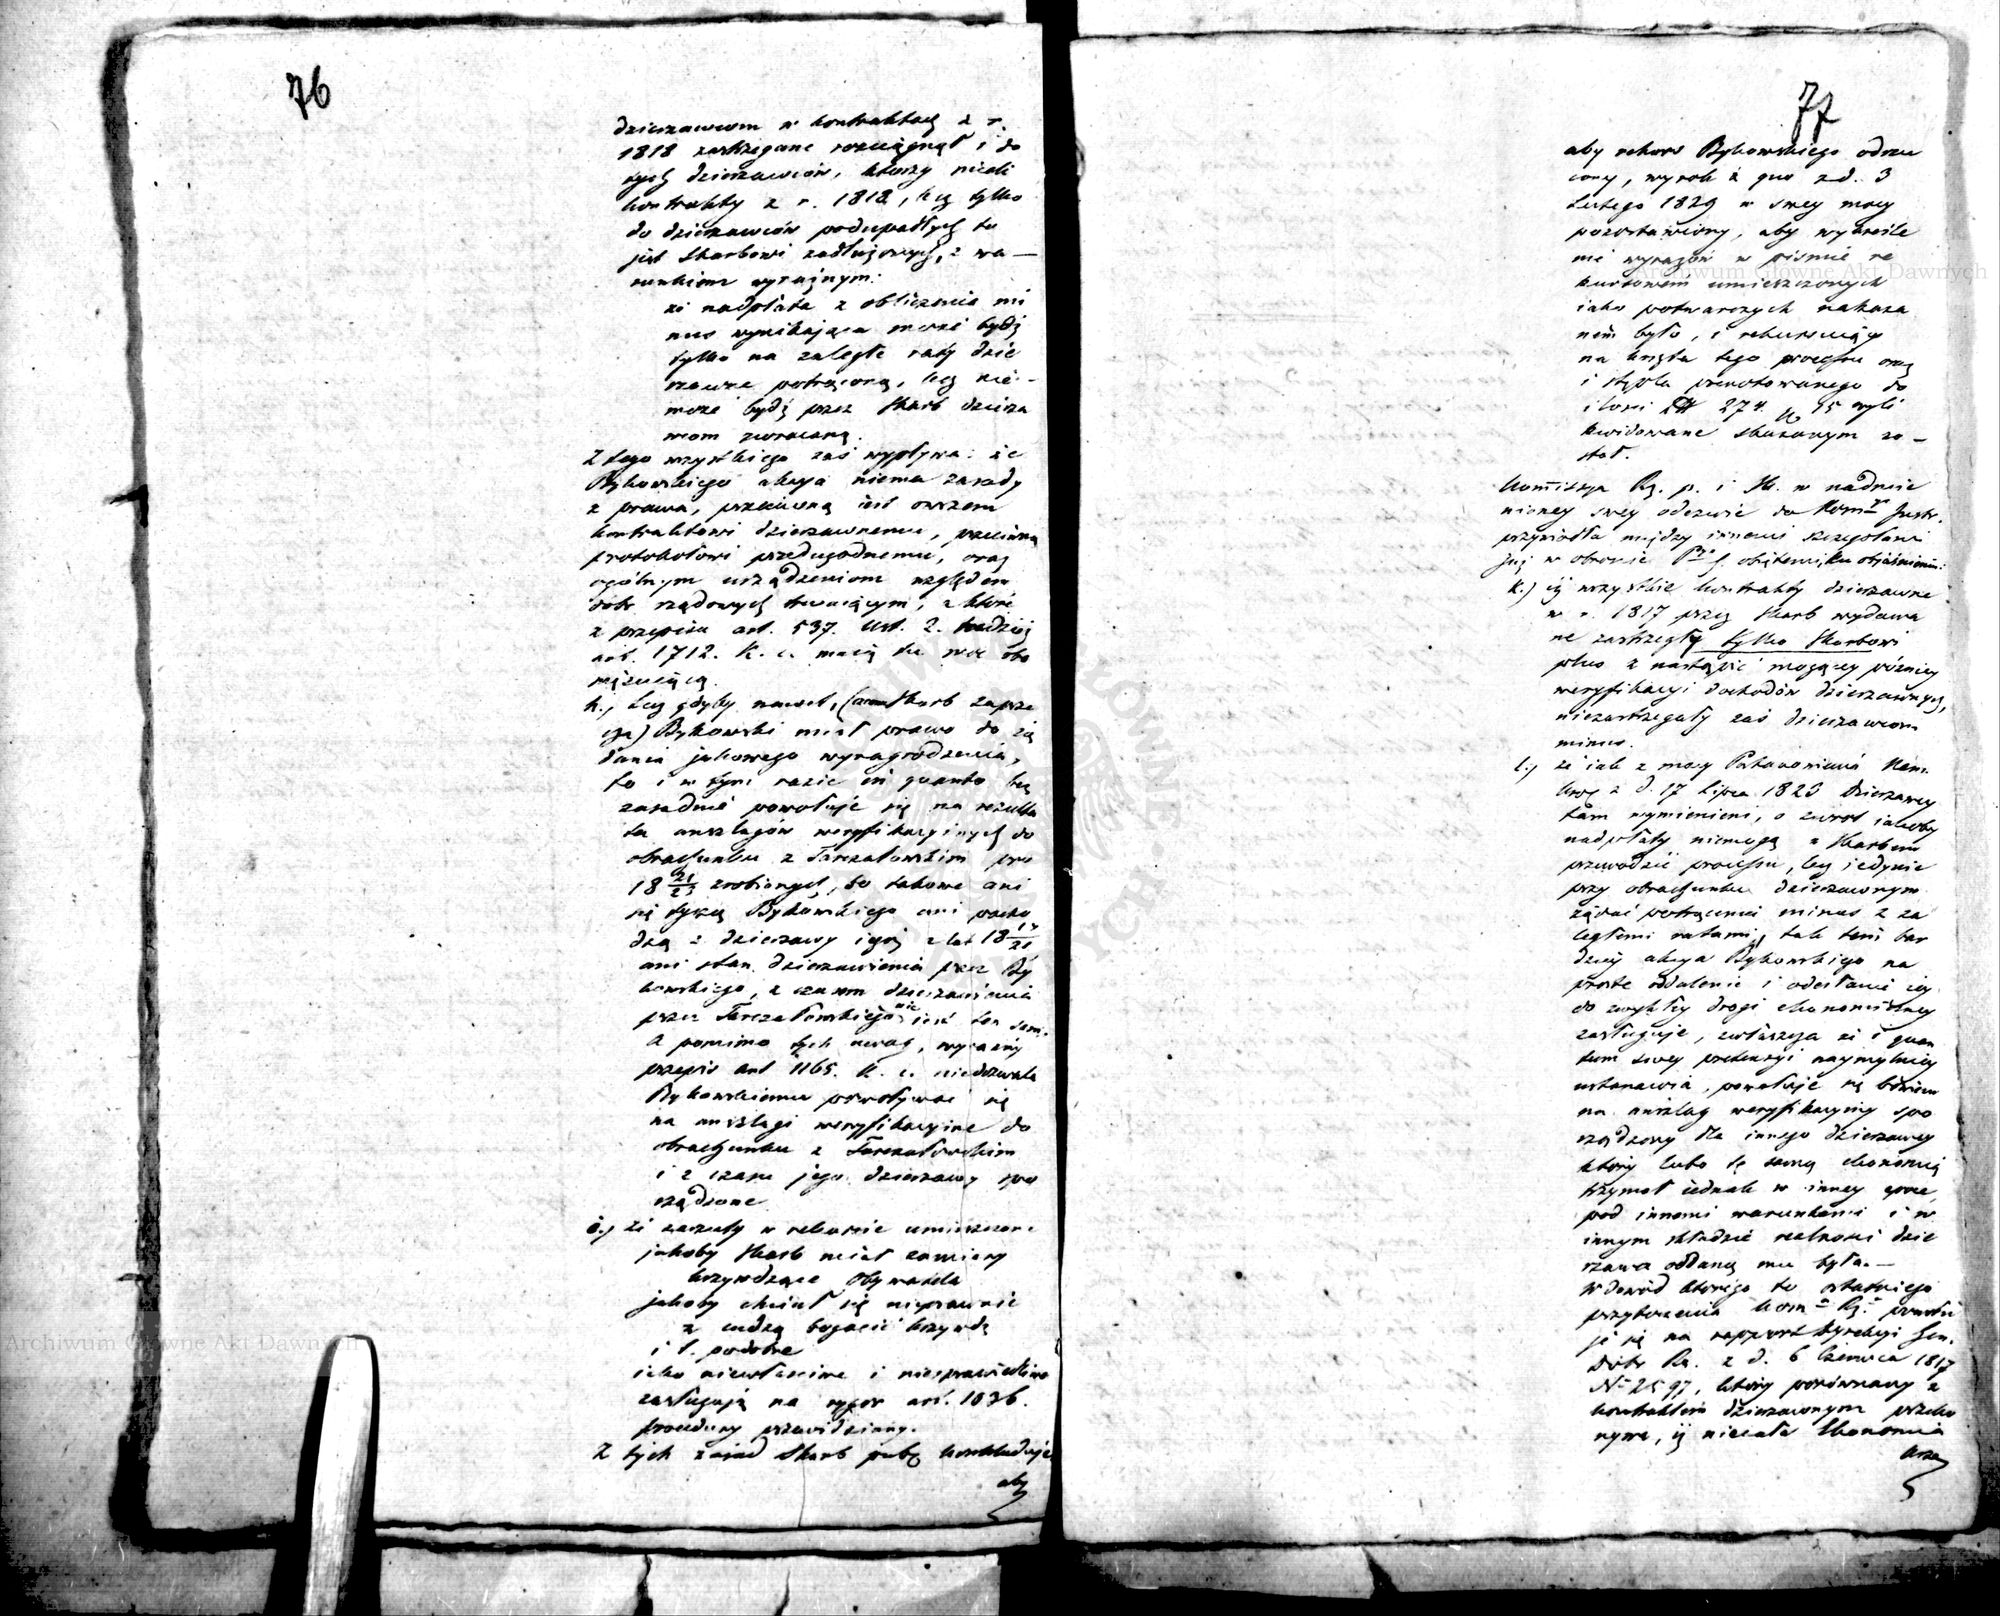 76
dzierzawcom w kontraktach z r.
1818 zastrzegane rozciągnął i do
tych dzierzawców, którzy mieli
kontrakty z r. 1818, lecz tylko
do dzierzawców podupadłych to
jest Skarbowi zadłużonych, z wa—
runkiem wyraźnym:
że nadpłata z obliczenia mi
nus wynikająca może bydź
tylko na zaległe raty dzie
rzawne potrąconą, lecz nie—
może bydź przez Skarb dzierza
wcom zwracaną.
Z tego wszystkiego zaś wypływa: że
Bykowskiego akcya niema zasady
z prawa, przeciwną jest owszem
kontraktowi dzierzawnemu, przeciwną
protokołowi przedugodnemu, oraz
ogólnym urządzeniom względem
dóbr rządowych trwającym, a które
z przepisu art. 537. Ust. 2. tudzież
art. 1712. K. c. mają tu moc obo
wiązującą.
h.) Lecz gdyby nawet, (czemu Skarb zaprze
cza) Bykowski miał prawo do żą
dania jakowego wynagrodzenia,
to i w tym razie in quanto bez
zasadnie powołuje się na rezulta
ta anszlagów weryfikacyjnych do
obrachunku z Tarczałowskim pro
18 21/23 zrobionych, bo takowe ani
się tyczą Bykowskiego ani pocho
dzą z dzierzawy jego z lat 18 17/21
ani stan dzierzawienia przez By
kowskiego, z czasem dzierzawienia
przez Tarczałowskiego nie jest ten sam.
A pomimo tych uwag, wyraźny
przepis art 1165. K. c. niedozwala
Bykowskiemu powoływać się
na anszlagi weryfikacyine do
obrachunku z Tarczałowskim
i z czasu jego dzierzawy spo
rządzone
i.) że zarzuty w rekursie umieszczone
jakoby Skarb miał zamiary
krzywdzące Obywatela
jakoby chciał się nieprawnie
z cudzą bogacić krzywdą
i t. podobne
jako niewłaściwe i niesprawiedliwe
zasługują na rygor art. 1036.
procedury przewidziany.
Z tych zasad Skarb publ. konkluduje
aby
77
aby rekurs Bykowskiego odrzu
cony, wyrok à quo z d. 3
Lutego 1829 w swey mocy
pozostawiony, aby wykreśle
nie wyrazów w piśmie re
kursowem umieszczonych
jako potwarczych nakaza
nem było, i rekursujący
na koszta tego procesu oraz
i stępla prenotowanego do
ilości 274. 15 wyli
kwidowane skazanym zo—
stał.
Kommissya Rz. p. i Sk. w nadmie
nioney swey odezwie do Komm Justr.
przywiodła między innemi szczegółami
już w obronie objętemi, ku objaśnieniu:
k.) iż wszystkie kontrakty dzierzawne
w r. 1817 przez Skarb wydawa
ne zastrzegły tylko Skarbowi
plus z nastąpić mogącey póżniey
weryfikacyi dochodów dzierzawnych,
niezastrzegały zaś dzierzawcom
minus.
l.) że jak z mocy Postanowienia Nam.
Król z d. 17 Lipca 1823 Dzierzawcy
tam wymienieni, o zwrot jakoby
nadpłaty niemogą z Skarbem
przewodzić procesu, lecz jedynie
przy obrachunku dzierzawnym
żądać potrącenia minus z za
ległemi ratami, tak tem bar
dziey akcya Bykowskiego na
proste oddalenie i odesłanie iey
do zwykłey drogi ekonomiczney
zasługuje, zwłaszcza że i quan
tum swey pretensyi naymylniey
ustanawia, powołuje się bowiem
na anszlag weryfikacyiny spo
rządzony dla innego dzierzawcy
który lubo tę samą ekonomią
trzymał iednak w inney epoce,
pod innemi warunkami i w
innym składzie realności dzie
rzawa oddaną mu była.—
W dowód którego to ostatniego
przytoczenia Kom Rz. powołu
je się na rapport Dyrekcyi Jen.
Dóbr Rz. z d. 6 Czerwca 1817
N 2597, który porównany z
kontraktem dzierzawnym przeko
nywa, iż niecała Ekonomia